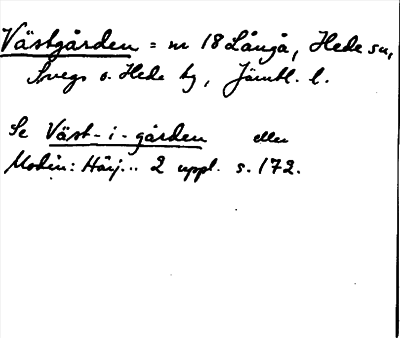 Västgården = nr 18 Långå, Hede sn,
Svegs o. Hede tg, Jämtl. l.
Se Väst-i-gården eller
Modin: Härj... 2 uppl. s. 172.